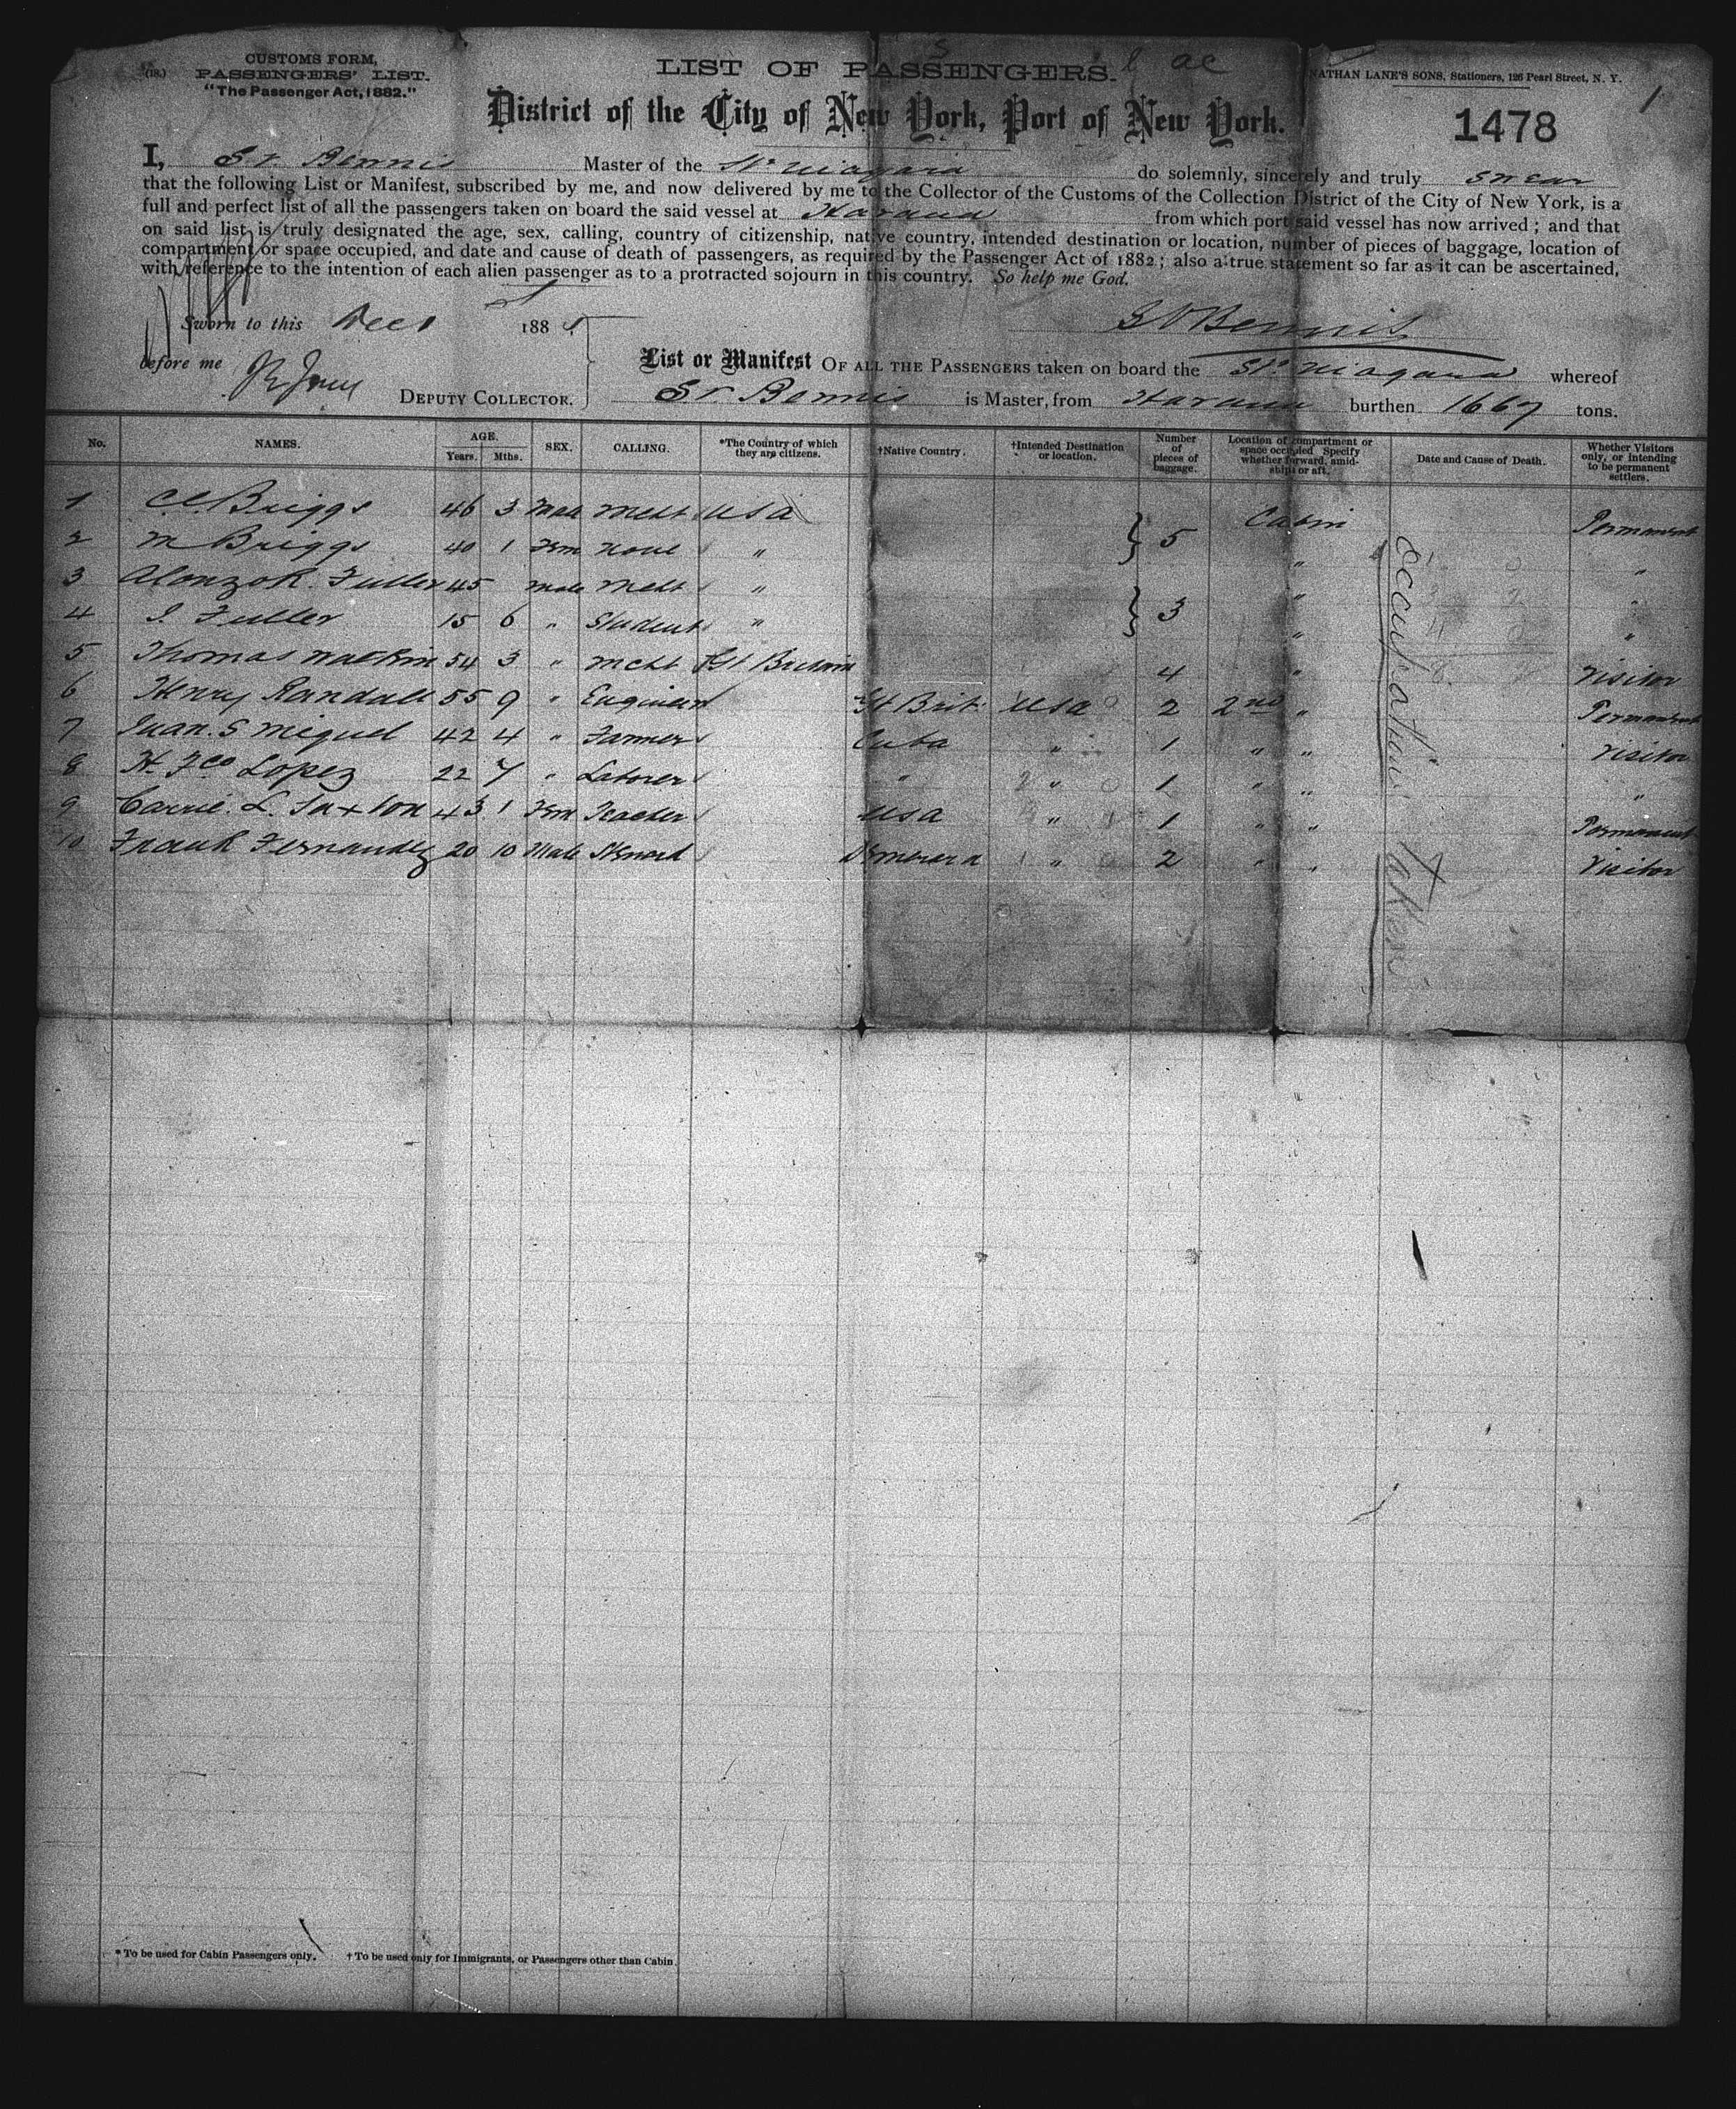 (18.)
CUSTOMS FORM,
PASSENGERS' LIST.
"The Passenger Act, 1882."
LIST OF PASSENGERS.
NATHAN LANE'S SONS, Stationers, 126 Pearl Street, N. Y.
1
District of the City of New York, Port of New York.
1478
I, S. V. Bennis Master of the Str Niagara do solemnly, sincerely and truly swear
that the following List or Manifest, subscribed by me, and now delivered by me to the Collector of the Customs of the Collection District of the City of New York, is a
full and perfect list of all the passengers taken on board the said vessel at Havana from which port said vessel has now arrived; and that
on said list is truly designated the age, sex, calling, country of citizenship, native country, intended destination or location, number of pieces of baggage, location of
compartment or space occupied, and date and cause of death of passengers, as required by the Passenger Act of 1882; also a true statement so far as it can be ascertained,
with reference to the intention of each alien passenger as to a protracted sojourn in this country. So help me God.
Sworn to this Dec 1 188
S V Bennis
before me
DEPUTY COLLECTOR.
List or Manifest OF ALL THE PASSENGERS taken on board the Str Niagara whereof
S. V. Bennis is Master, from Havana burthen 1667 tons.
No. NAMES. AGE. Years. Mths. SEX. CALLING. *The Country of which they are citizens. †Native Country. †Intended Destination or location. Number of pieces of baggage. Location of compartment or space occupied Specify whether forward, amidships or aft. Date and Cause of Death. Whether Visitors only, or intending to be permanent settlers.
1 C. Briggs 46 3 Male Mcht USA Cabin Permanent
2 M Briggs 40 1 Fem None " } 5 " "
3 Alonzo R. Fuller 45 Male Mcht " " "
4 J. Fuller 15 6 " Student " } 3 " "
5 Thomas Watkin 54 3 " Mcht Gt Britain 4 " Visitor
6 Henry Randall 55 9 " Engineer Gt Brit. USA 2 2nd " Permanent
7 Juan. S Miguel 42 4 " Farmer Cuba " 1 " " Visitor
8 H. Fco Lopez 22 7 " Laborer " " 1 " " "
9 Carrie. L. Saxton 43 1 Fem Teacher USA " 1 " " Permanent
10 Frank Fernandez 20 10 Male Steward Demerara " 2 " " Visitor
Occupation Taken
* To be used for Cabin Passengers only. † To be used only for Immigrants, or Passengers other than Cabin.